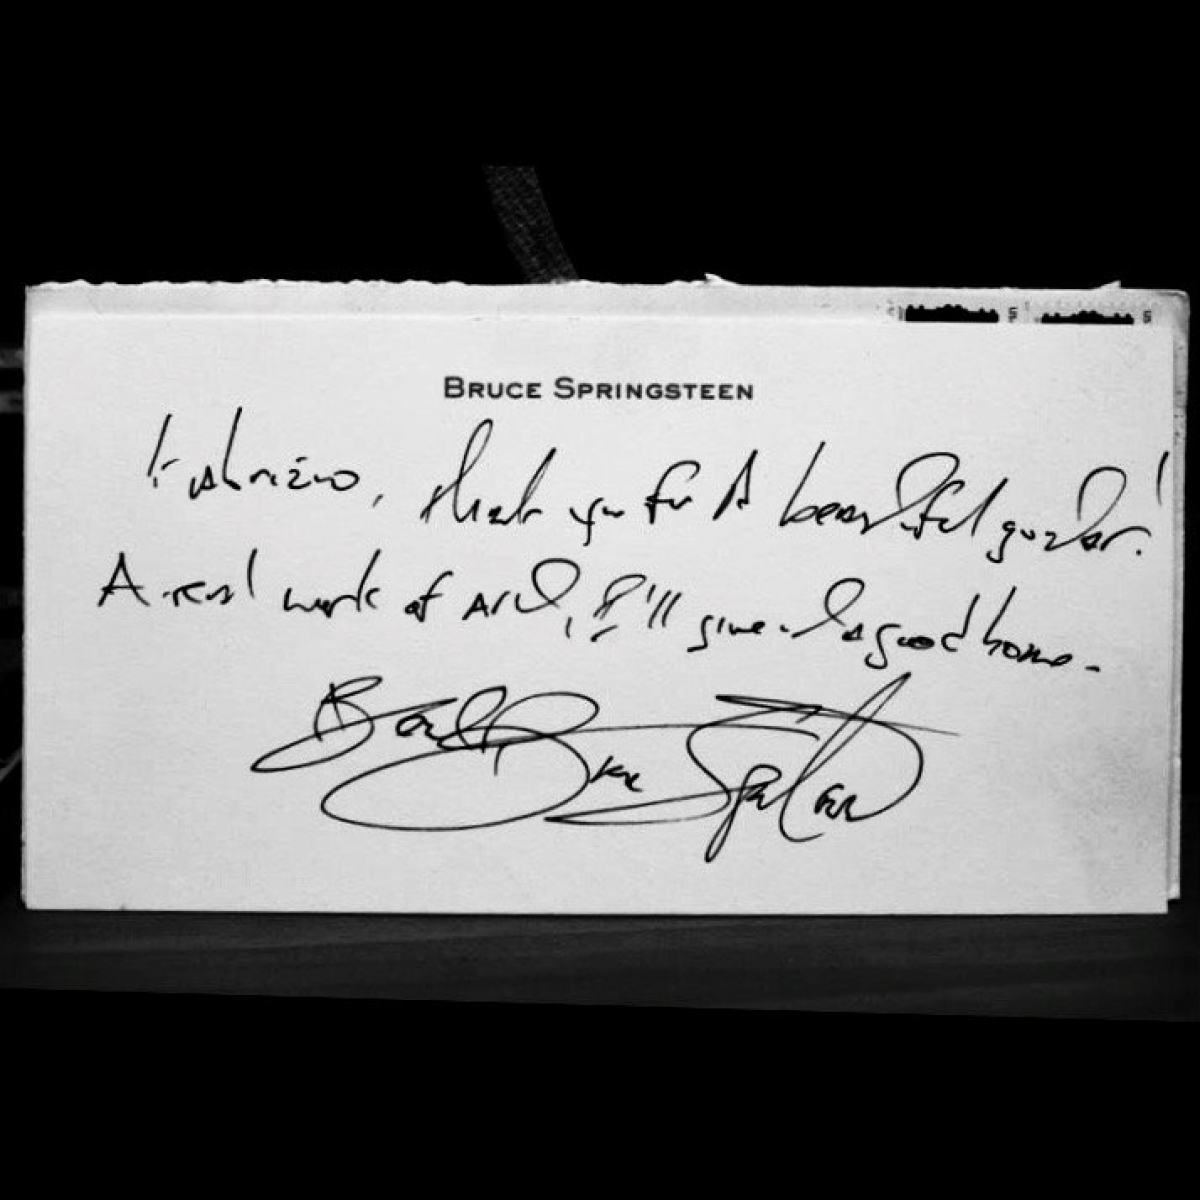 BRUCE SPRINGSTEEN
Fabrizio, thank you for A beautiful guitar!
A real work of art, I'll give it a good home.
Best, Bruce Springsteen